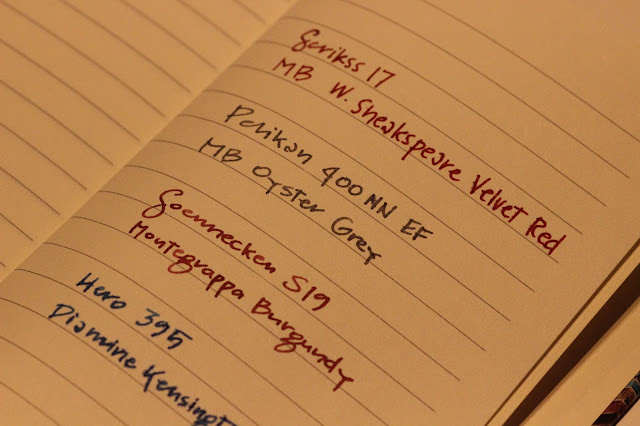 Scrikss 17
MB W. Sheakspeare Velvet Red
Pelikan 400NN EF
MB Oyster Grey
Soennecken S19
Montegrappa Burgundy
Hero 395
Diamine Kensingt